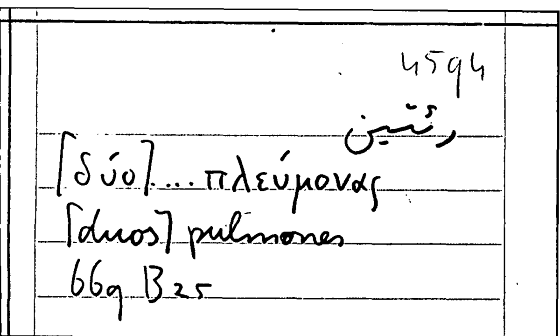 4594
رئتين
[δύο]...πλεύμονας
[duos] pulmones
669 B 25